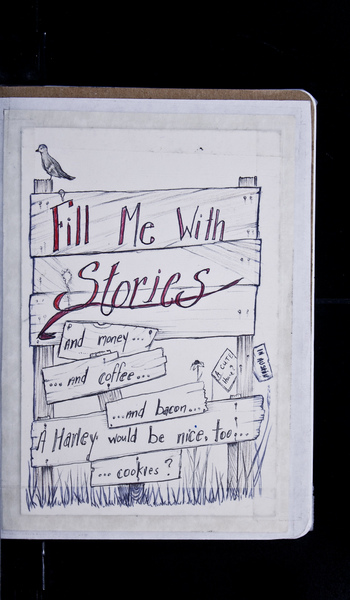 Fill Me With
Stories
And money...
...And coffee...
...and bacon...
A Harley would be nice, too...
...cookies?